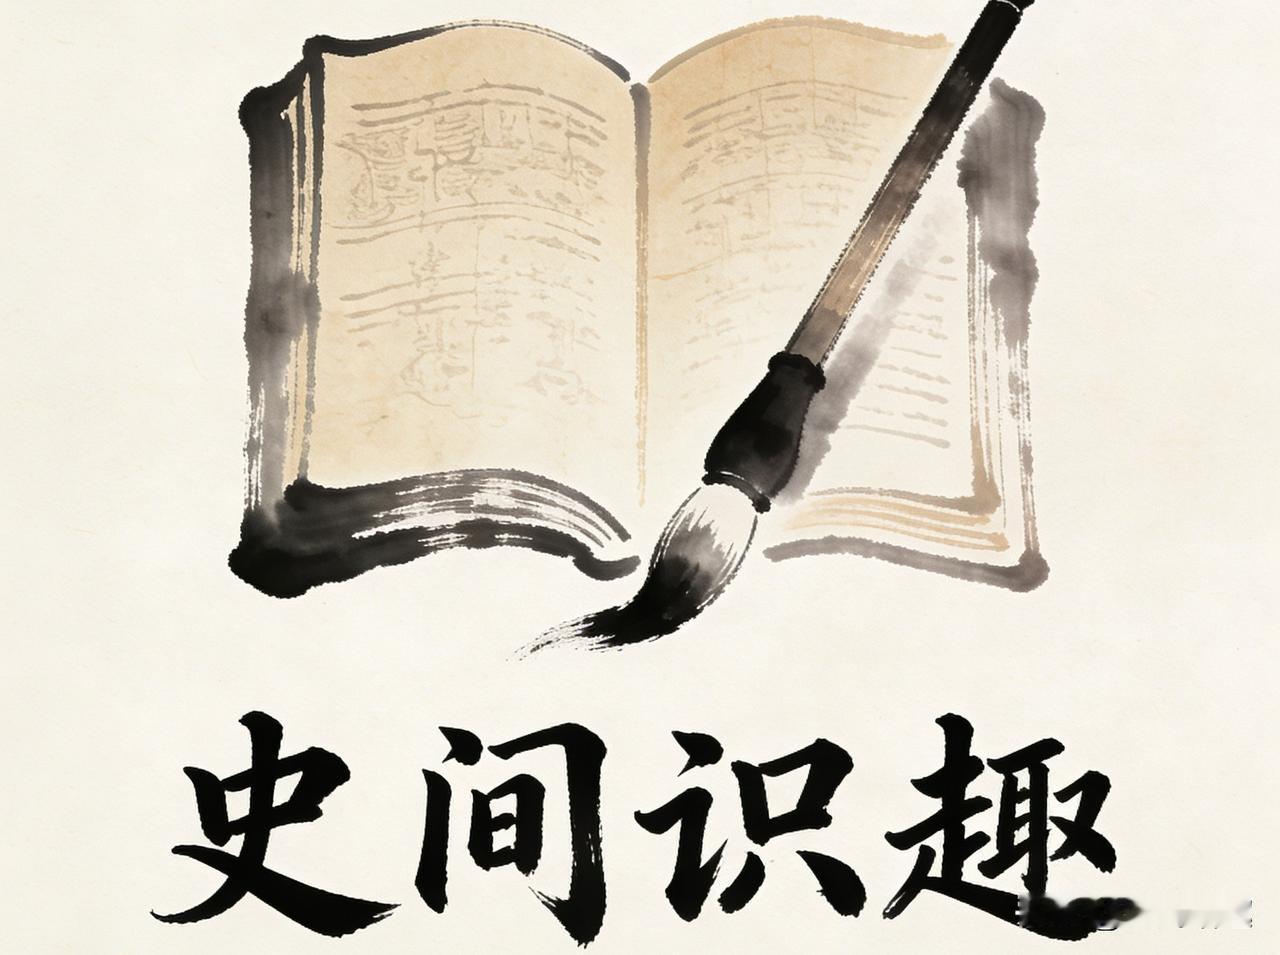 史间识趣